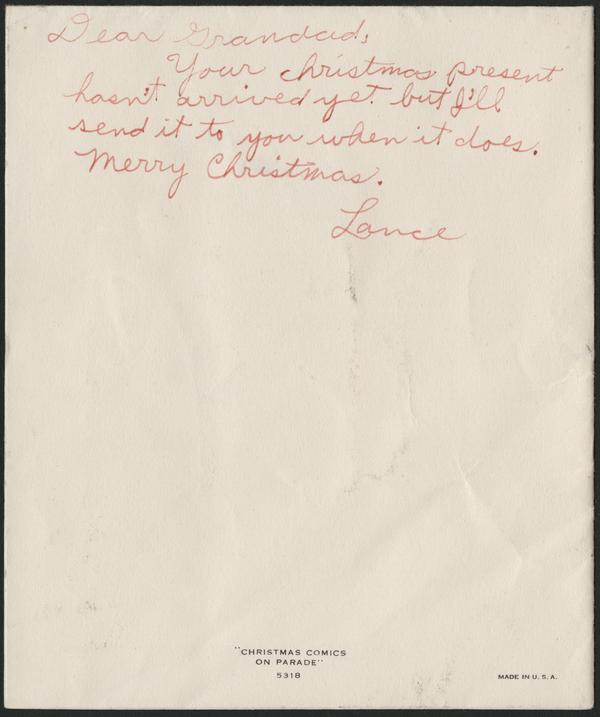 Dear Grandad,
Your christmas present
hasn't arrived yet but I'll
send it to you when it does.
Merry Christmas.
Lance
"CHRISTMAS COMICS
ON PARADE"
5318
MADE IN U.S.A.